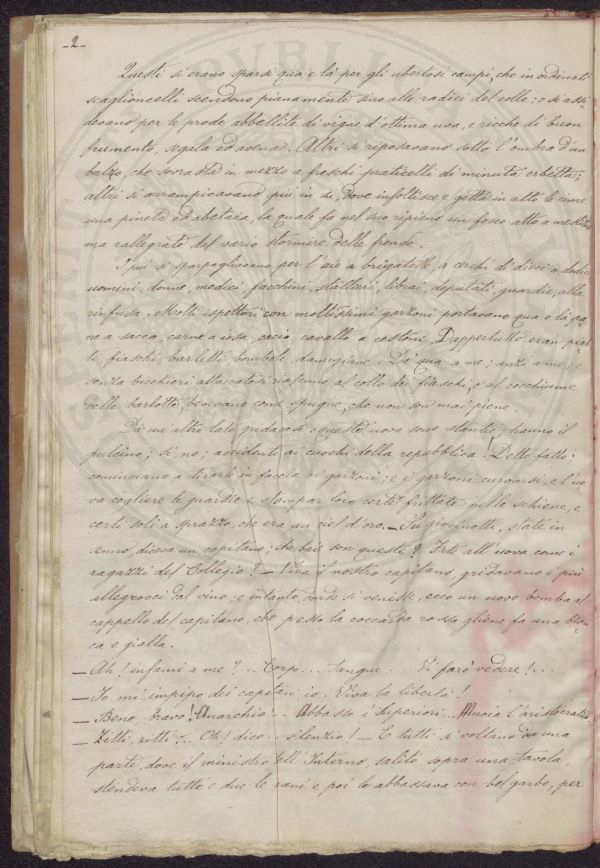 -2-
Questi si erano sparsi qua e là per gli ubertosi campi, che in ordinati
scaglioncelli scendono pianamente sino alle radici del colle; e si assi
devano per le prode abbellite di vigne d'ottima uva, e ricche di buon
frumento, segala ed avena. Altri si riposavano sotto l'ombra d'un
balzo, che sovrasta in mezzo a freschi praticelli di minuta erbetta;
altri si arrampicavano più in su, dove infoltisce e getta in alto le cime
una pineta ed abetaia, la quale fa nel suo ripieno un fosco atto a
ma rallegrato dal vario stormire delle fronde.
I più si sparpagliavano per l'aie a brigatelle, a cerchi di dieci o dodici
uomini, donne, medici facchini, stallieri, librai, deputati, guardie, alla
rinfusa. Molti ispettori con moltissimi garzoni portavano qua e là pa
ne a sacca, carne a iosa, cacio cavallo a cestoni. Dappertutto eran piat
ti, fiaschi, barletti, bombole, damigiane. Da qua, a me; anzi a me; e
senza bicchieri attaccatosi ciascuno al collo dei fiaschi, e al cocchiume
delle barlotte, bevevano come spugne, che non son mai piene.
Da un altro lato gridavasi: queste uova sono stantie; hanno il
pulcino; sì, no; accidenti ai cuochi della repubblica! Detto fatto:
cominciano a tirarle in faccia ai garzoni; e i garzoni curvarsi, e l'uo
va cogliere le guardie e stampar loro certe frittate nelle schiene, e
certi soli a sprazzo, che era un ciel d'oro. — Su giovinotti, state in
senno, diceva un capitano; che baie son queste? Fate all'uova come i
ragazzi del Collegio? — Viva il nostro capitano, gridavano i più
allegrocci dal vino; e intanto, donde si venisse, ecco un uovo bomba al
cappello del capitano, che pesso la coccarda rossa gliene fa una bian
ca e gialla.
— Ah! infami a me?... Corpo... Sangue.... Vi farò vedere!...
— Io mi impipo dei capitani, io. Viva la libertà!
— Bene, bravo! Anarchia... Abbasso i Superiori... Muoia l'aristocratico.
— Zitti, zitti... Oh! dico.. silenzio! — E tutti si voltano da una
parte, dove il ministro dell'Interno, salito sopra una tavola,
stendeva tutte e due le mani e poi le abbassava con bel garbo, per